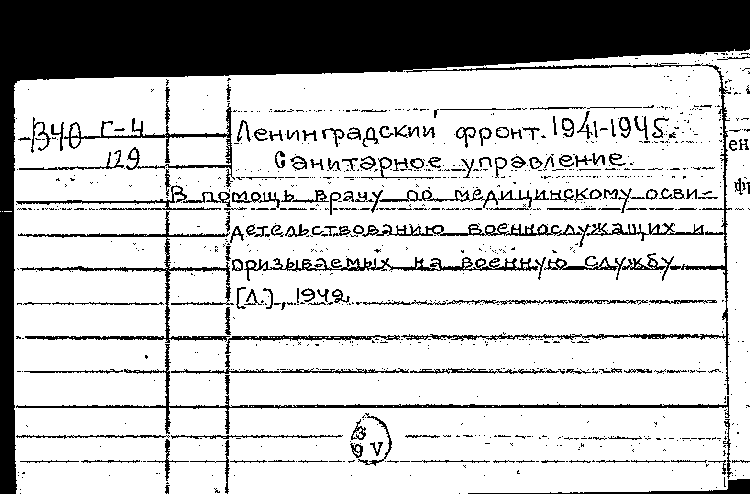 В40 Г-4
129
Ленинградский фронт. 1941-1945.
Санитарное управление.
В помощь врачу по медицинскому осви-
детельствованию военнослужащих и
призываемых на военную службу.
[Л.], 1942.
V